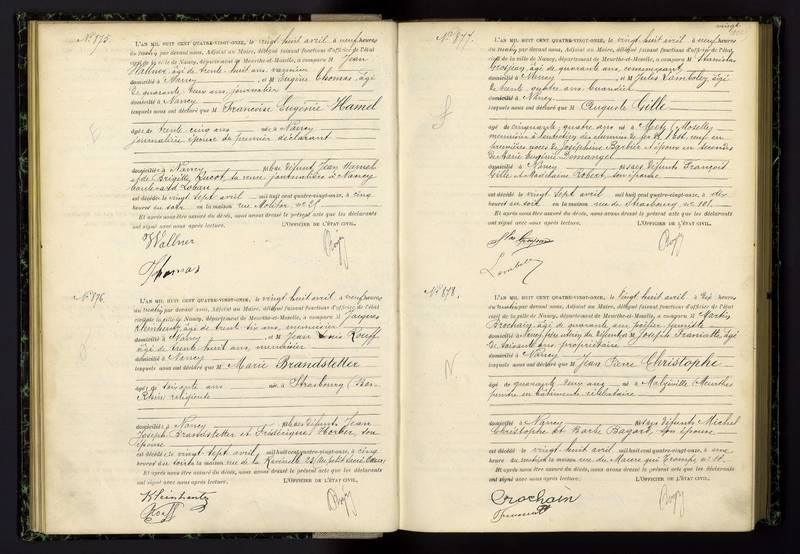 N° 875.
L'AN MIL HUIT CENT QUATRE-VINGT-ONZE, le vingt huit avril à neuf heures
du matin par devant nous, Adjoint au Maire, délégué faisant fonctions d'officier de l'état
civil de la ville de Nancy, département de Meurthe-et-Moselle, a comparu M Jean
Wallner, âgé de trente huit ans,
domicilié à Nancy et M Eugène Thomas, âgé
de quarante deux ans, journalier
domicilié à Nancy
lesquels nous ont déclaré que M Françoise Eugénie Hamel
âgé de trente cinq ans née à Nancy
journalière épouse du premier déclarant
domicilié à Nancy fille de défunt Jean Hamel
et de Brigitte sa veuve, journalière à Nancy
boulevard Lobau
est décédé le vingt sept avril mil huit cent quatre-vingt-onze, à cinq
heures du soir en la maison rue Molitor n° 25
Et après nous être assuré du décès, nous avons dressé le présent acte que les déclarants
ont signé avec nous après lecture. L'OFFICIER DE L'ÉTAT CIVIL,
Wallner
Thomas
N° 876.
L'AN MIL HUIT CENT QUATRE-VINGT-ONZE, le vingt huit avril à neuf heures
du matin par devant nous, Adjoint au Maire, délégué faisant fonctions d'officier de l'état
civil de la ville de Nancy, département de Meurthe-et-Moselle, a comparu M Jacques
Kleinhentz, âgé de trente six ans, menuisier
domicilié à Nancy et M Jean Louis Rouff
âgé de trente huit ans, menuisier
domicilié à Nancy
lesquels nous ont déclaré que M Marie Brandstetter
âgé de soixante ans née à Strasbourg (Bas-
Rhin) religieuse
domicilié à Nancy fille des défunts Jean
Joseph Brandstetter et Frédérique son
épouse
est décédé le vingt sept avril mil huit cent quatre-vingt-onze, à cinq
heures du soir en la maison rue de la Ravinelle
Et après nous être assuré du décès, nous avons dressé le présent acte que les déclarants
ont signé avec nous après lecture. L'OFFICIER DE L'ÉTAT CIVIL,
Kleinhentz
Rouff
vingt
N° 877.
L'AN MIL HUIT CENT QUATRE-VINGT-ONZE, le vingt huit avril à neuf heures
du matin par devant nous, Adjoint au Maire, délégué faisant fonctions d'officier de l'état
civil de la ville de Nancy, département de Meurthe-et-Moselle, a comparu M Stanislas
âgé de quarante ans, commerçant
domicilié à Nancy et M Jules Lambolez, âgé
de trente quatre ans
domicilié à Nancy
lesquels nous ont déclaré que M Auguste Gille
âgé de cinquante quatre ans né à Metz (Moselle)
menuisier des chemins de fer de l'Est, veuf en
premières noces de Joséphine Barbier époux en secondes
de Marie Eugénie Demangel
domicilié à Nancy fils des défunts François
Gille et Madelaine Robert, son épouse
est décédé le vingt sept avril mil huit cent quatre-vingt-onze, à dix
heures du soir en la maison rue de Strasbourg n° 101.
Et après nous être assuré du décès, nous avons dressé le présent acte que les déclarants
ont signé avec nous après lecture. L'OFFICIER DE L'ÉTAT CIVIL,
N° 878.
L'AN MIL HUIT CENT QUATRE-VINGT-ONZE, le vingt huit avril à dix heures
du matin par devant nous, Adjoint au Maire, délégué faisant fonctions d'officier de l'état
civil de la ville de Nancy, département de Meurthe-et-Moselle, a comparu M
Drochain, âgé de quarante ans
domicilié à Nancy et M Joseph âgé
de soixante ans, propriétaire
domicilié à Nancy
lesquels nous ont déclaré que M Jean Pierre Christophe
âgé de quarante deux ans né à Malzéville (Meurthe)
peintre en bâtiments, célibataire
domicilié à Nancy fils des défunts Michel
Christophe et Barbe Bagard, son épouse
est décédé le vingt huit avril mil huit cent quatre-vingt-onze, à une
heure du matin en la maison rue du Maure qui Trompe
Et après nous être assuré du décès, nous avons dressé le présent acte que les déclarants
ont signé avec nous après lecture. L'OFFICIER DE L'ÉTAT CIVIL,
Drochain